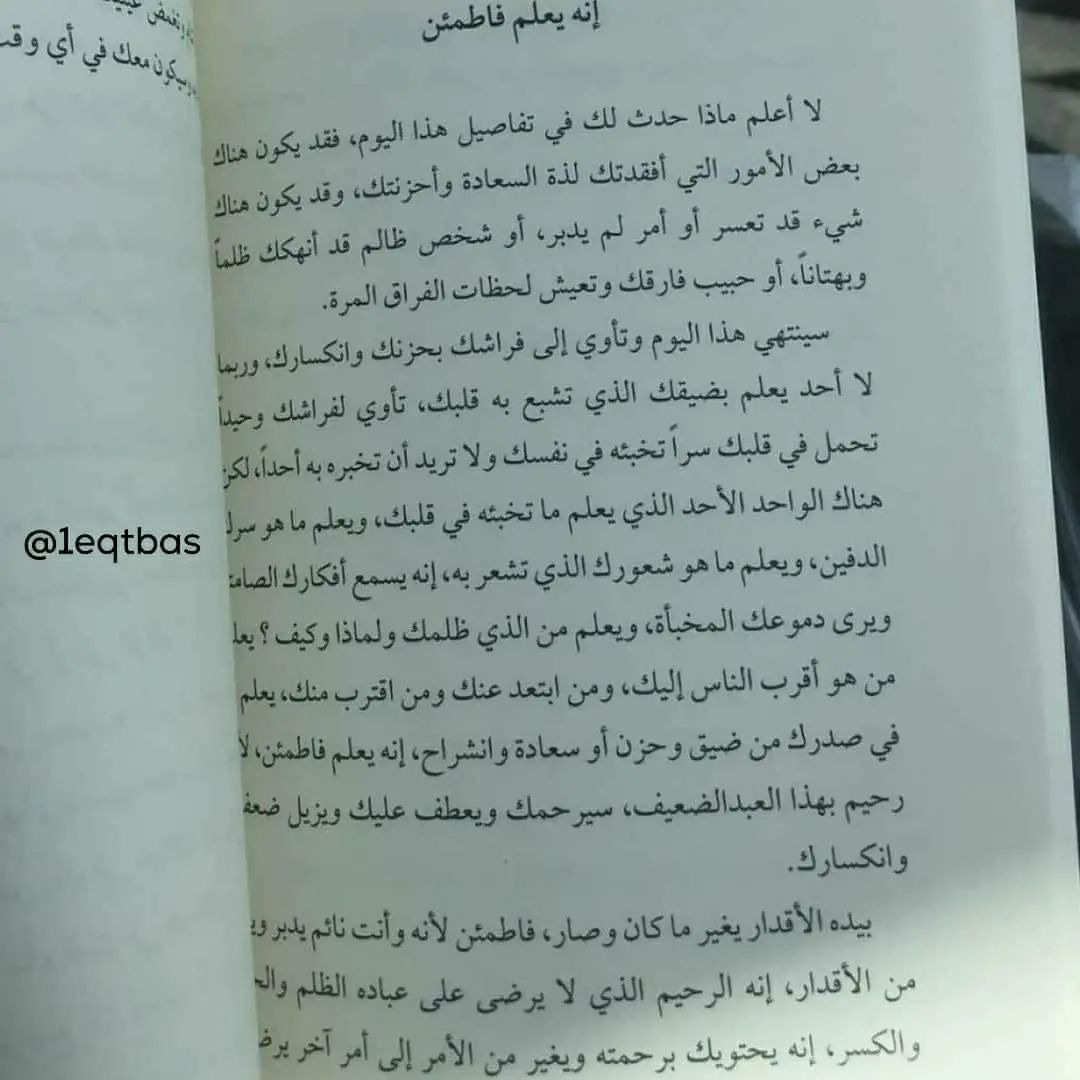 إنه يعلم فاطمئن
لا أعلم ماذا حدث لك في تفاصيل هذا اليوم، فقد يكون هناك
بعض الأمور التي أفقدتك لذة السعادة وأحزنتك، وقد يكون هناك
شيء قد تعسر أو أمر لم يدبر، أو شخص ظالم قد أنهكك ظلماً
وبهتاناً، أو حبيب فارقك وتعيش لحظات الفراق المرة.
سينتهي هذا اليوم وتأوي إلى فراشك بحزنك وانكسارك، وربما
لا أحد يعلم بضيقك الذي تشبع به قلبك، تأوي لفراشك وحيداً
تحمل في قلبك سراً تخبئه في نفسك ولا تريد أن تخبره به أحداً، لكن
هناك الواحد الأحد الذي يعلم ما تخبئه في قلبك، ويعلم ما هو سرك
الدفين، ويعلم ما هو شعورك الذي تشعر به، إنه يسمع أفكارك
ويرى دموعك المخبأة، ويعلم من الذي ظلمك ولماذا وكيف؟
من هو أقرب الناس إليك، ومن ابتعد عنك ومن اقترب منك، يعلم
في صدرك من ضيق وحزن أو سعادة وانشراح، إنه يعلم فاطمئن،
رحيم بهذا العبدالضعيف، سيرحمك ويعطف عليك ويزيل
وانكسارك.
بيده الأقدار يغير ما كان وصار، فاطمئن لأنه وأنت نائم يدبر
من الأقدار، إنه الرحيم الذي لا يرضى على عباده الظلم
والكسر، إنه يحتويك برحمته ويغير من الأمر إلى أمر آخر
معك في أي
@1eqtbas